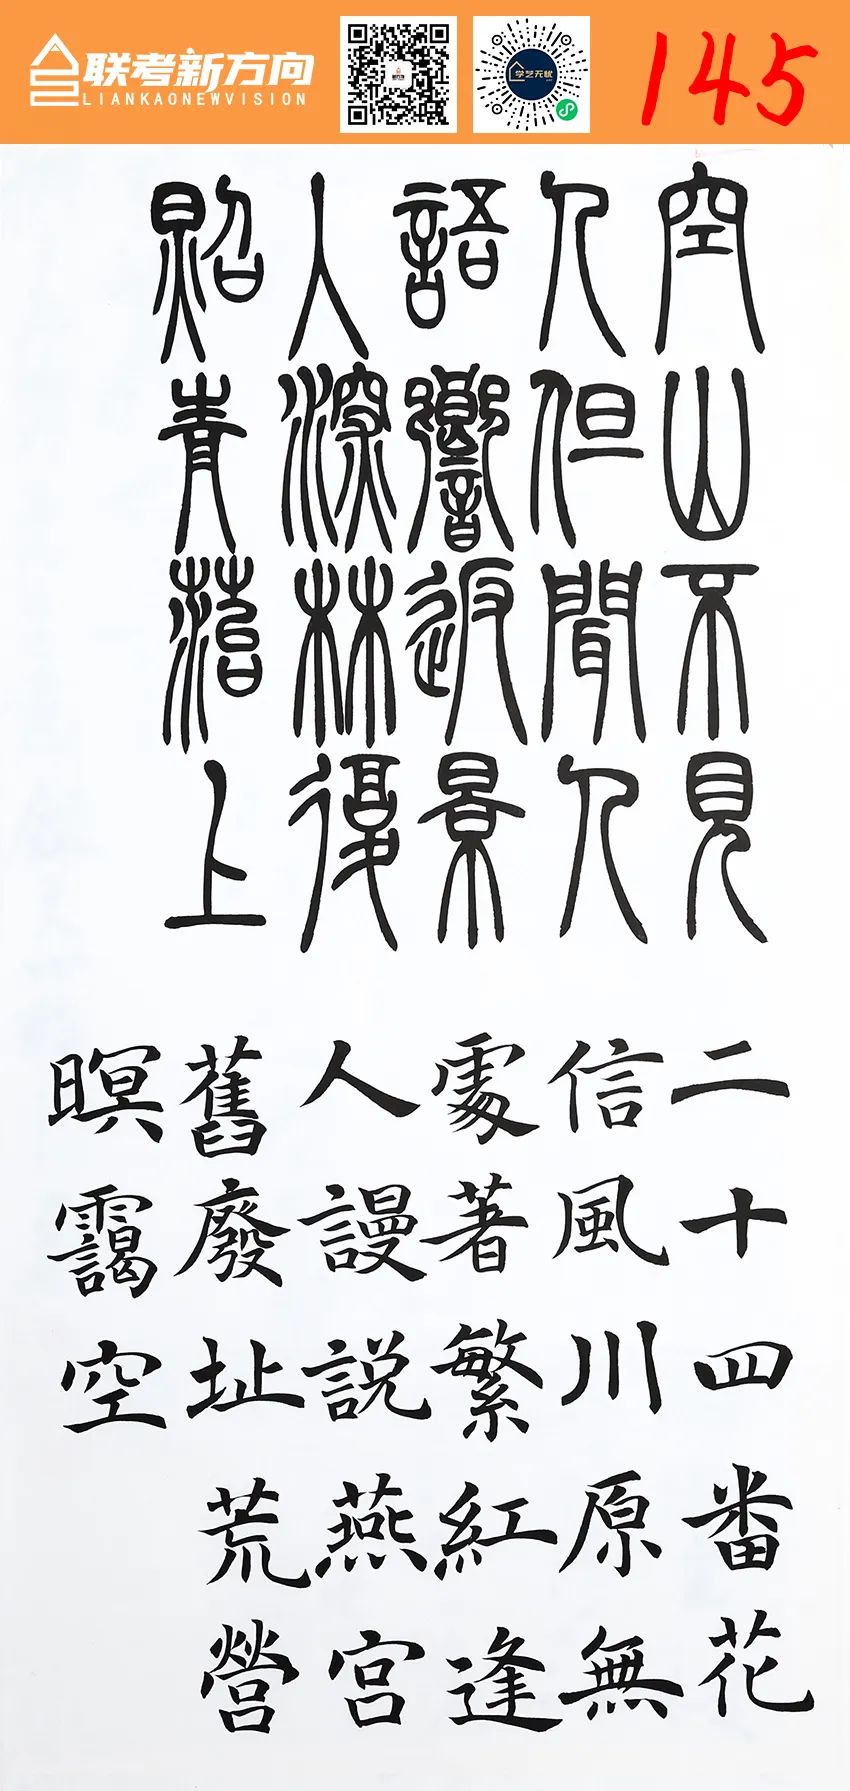 联考新方向
LIANKAONEWVISION
学艺无忧
145
空山不見
人但聞人
語響返景
入深林復
照青菭上
二十四番花
信風川原無
處著繁紅逢
人謾説燕宮
舊廢址荒營
暝靄空